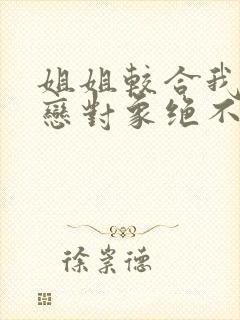 姐姐較合我
戀對象絕不
徐崇德